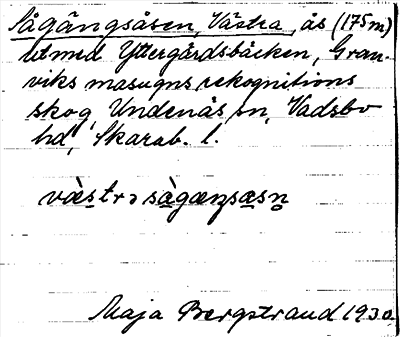 Sågångsåsen, Västra, ås (175m)
utmed Yttergårdsbäcken, Gran-
viks masugns rekognitions
skog, Undenås sn, Vadsbo
hd, Skarab. l.
væ̀strə sàgæŋsæsn̥
Maja Bergstrand 1930